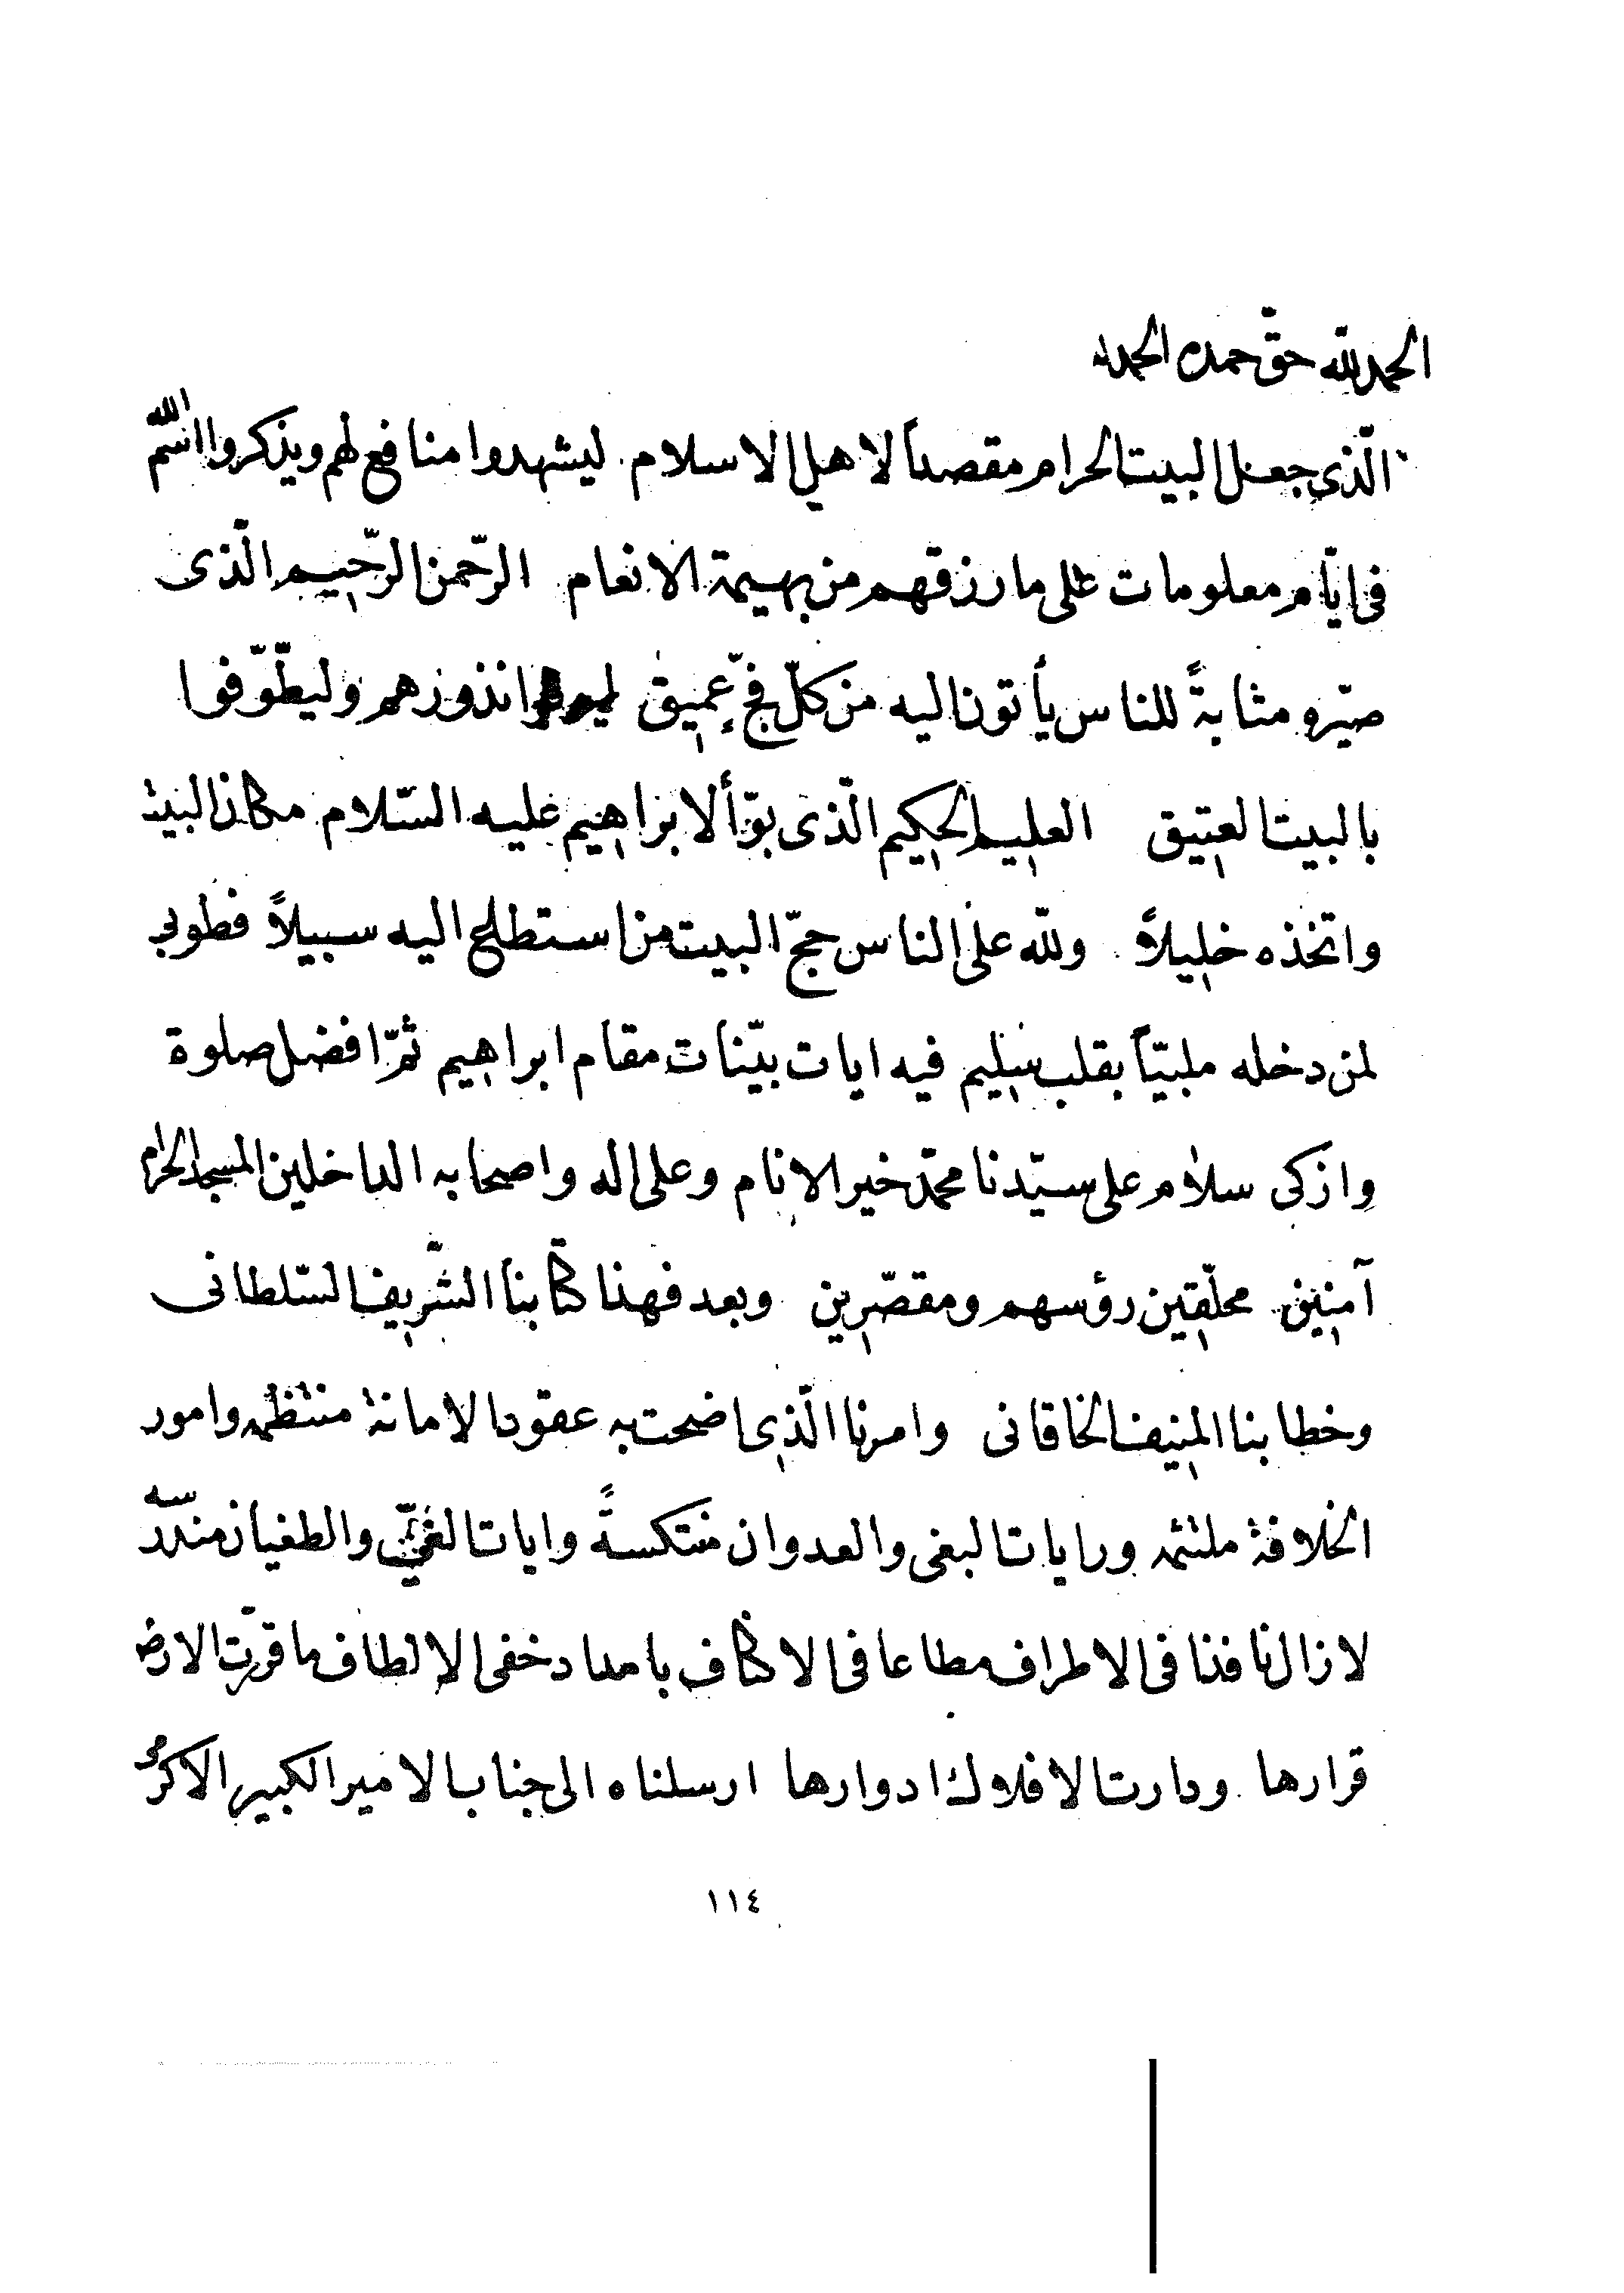 الحمد لله حقّ حمده الحمد لله
الّذى جعل البيت الحرام مقصداً لاهل الاسلام ليشهدوا منافع لهم ويذكروا اسم الله
فى ايّام معلومات على ما رزقهم من بهيمة الانعام الرّحمن الرّحيم الّذى
صيّره مثابةً للناس يأتون اليه من كلّ فجّ عميق ليوفوا نذورهم وليطّوّفوا
بالبيت العتيق العليم الحكيم الّذى بوّأ لابراهيم عليه السّلام مكان البيت
واتخذه خليلاً ولله على الناس حجّ البيت من استطاع اليه سبيلاً فطوبى
لمن دخله ملبّياً بقلب سليم فيه ايات بيّنات مقام ابراهيم ثمّ افضل صلوة
وازكى سلام على سيّدنا محمّد خير الانام وعلى اله واصحابه الداخلين المسجد الحرام
آمنين محلّقين رؤسهم ومقصّرين وبعد فهذا كتابنا الشّريف السّلطانى
وخطابنا المنيف الخاقانى وامرنا الّذى اضحت به عقود الامانة منتظمه وامور
الخلافة ملتئمه ورايات البغى والعدوان منتكسةً وايات الغىّ والطغيان مندرسه
لا زال نافذا فى الاطراف مطاعا فى الاكناف بامداد خفى الالطاف ما قرّت الارض
قرارها ودارت الافلاك ادوارها ارسلناه الى جناب الامير الكبير الاكرمى
١١٤